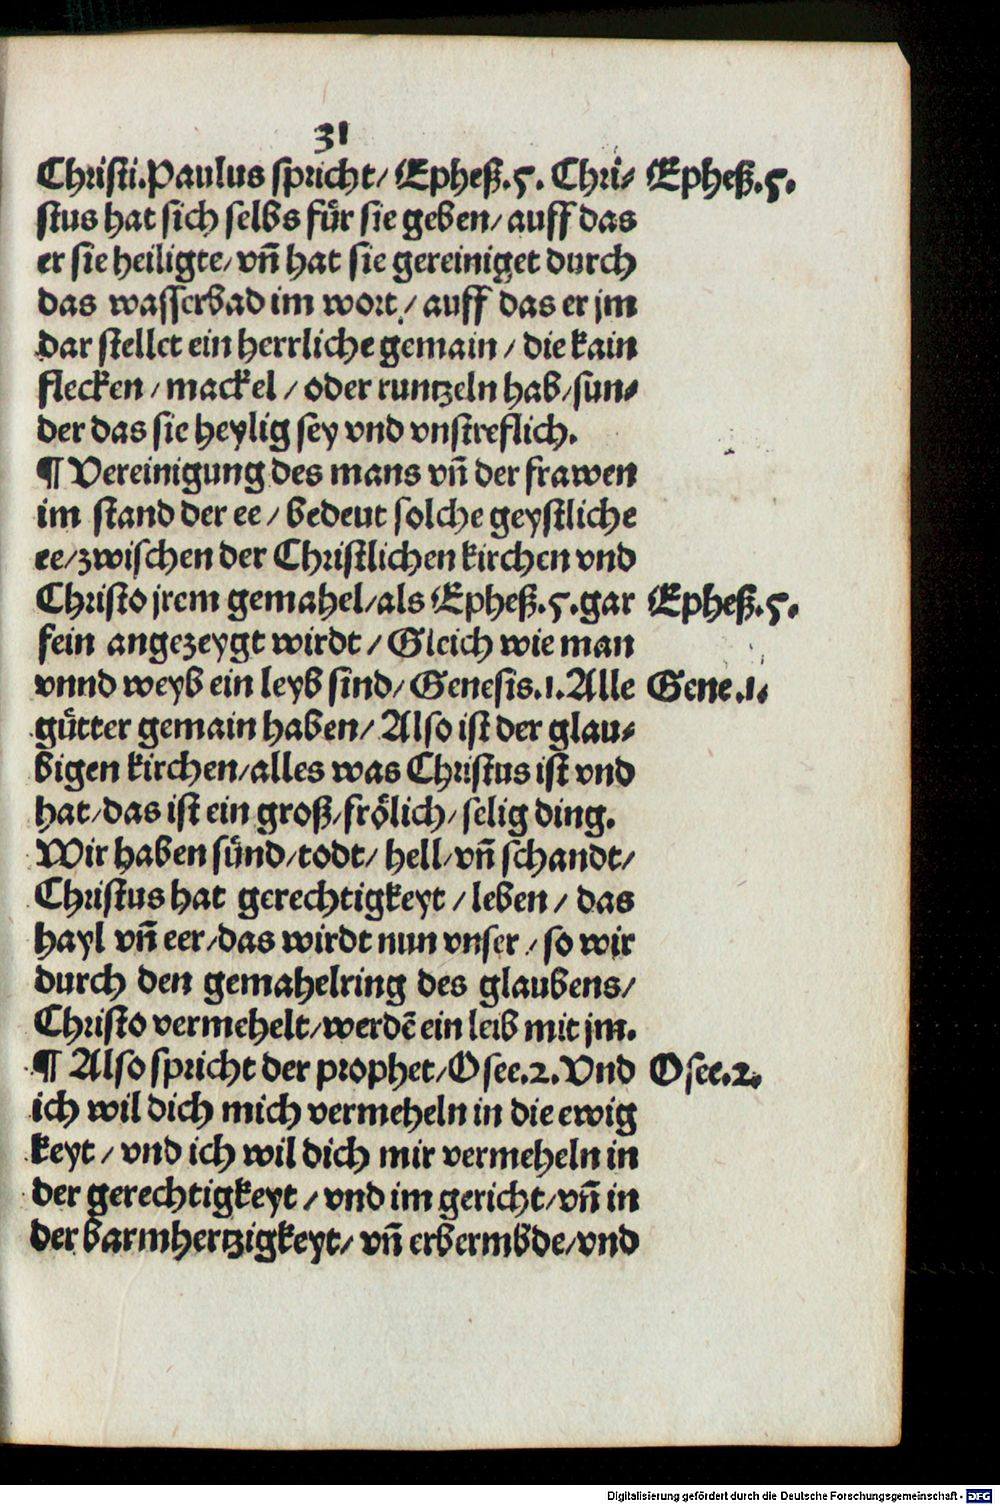 31
Christi.Paulus spricht/ Epheß.5. Chri⸗ Epheß.5.
stus hat sich selbs fuͤr sie geben/ auff das
er sie heiligte/ vñ hat sie gereiniget durch
das wasserbad im wort/ auff das er jm
dar stellet ein herrliche gemain / die kain
flecken / mackel / oder runtzeln hab/sun⸗
der das sie heylig sey vnd vnstreflich.
¶ Vereinigung des mans vñ der frawen
im stand der ee / bedeut solche geystliche
ee/zwischen der Christlichen kirchen vnd
Christo jrem gemahel/als Epheß.5.gar Epheß.5.
fein angezeygt wirdt / Gleich wie man
vnnd weyb ein leyb sind/ Genesis.1.Alle Gene.1.
guͤtter gemain haben/ Also ist der glau⸗
bigen kirchen/alles was Christus ist vnd
hat/das ist ein groß/froͤlich/ selig ding.
Wir haben suͤnd/todt/ hell/vñ schandt/
Christus hat gerechtigkeyt / leben / das
hayl vñ eer/das wirdt nun vnser / so wir
durch den gemahelring des glaubens/
Christo vermehelt/werdẽ ein leib mit jm.
¶ Also spricht der prophet/Osee.2.Vnd Osee.2.
ich wil dich mich vermeheln in die ewig
keyt / vnd ich wil dich mir vermeheln in
der gerechtigkeyt / vnd im gericht/vñ in
der barmhertzigkeyt/ vñ erbermbde/vnd
Digitalisierung gefördert durch die Deutsche Forschungsgemeinschaft - DFG